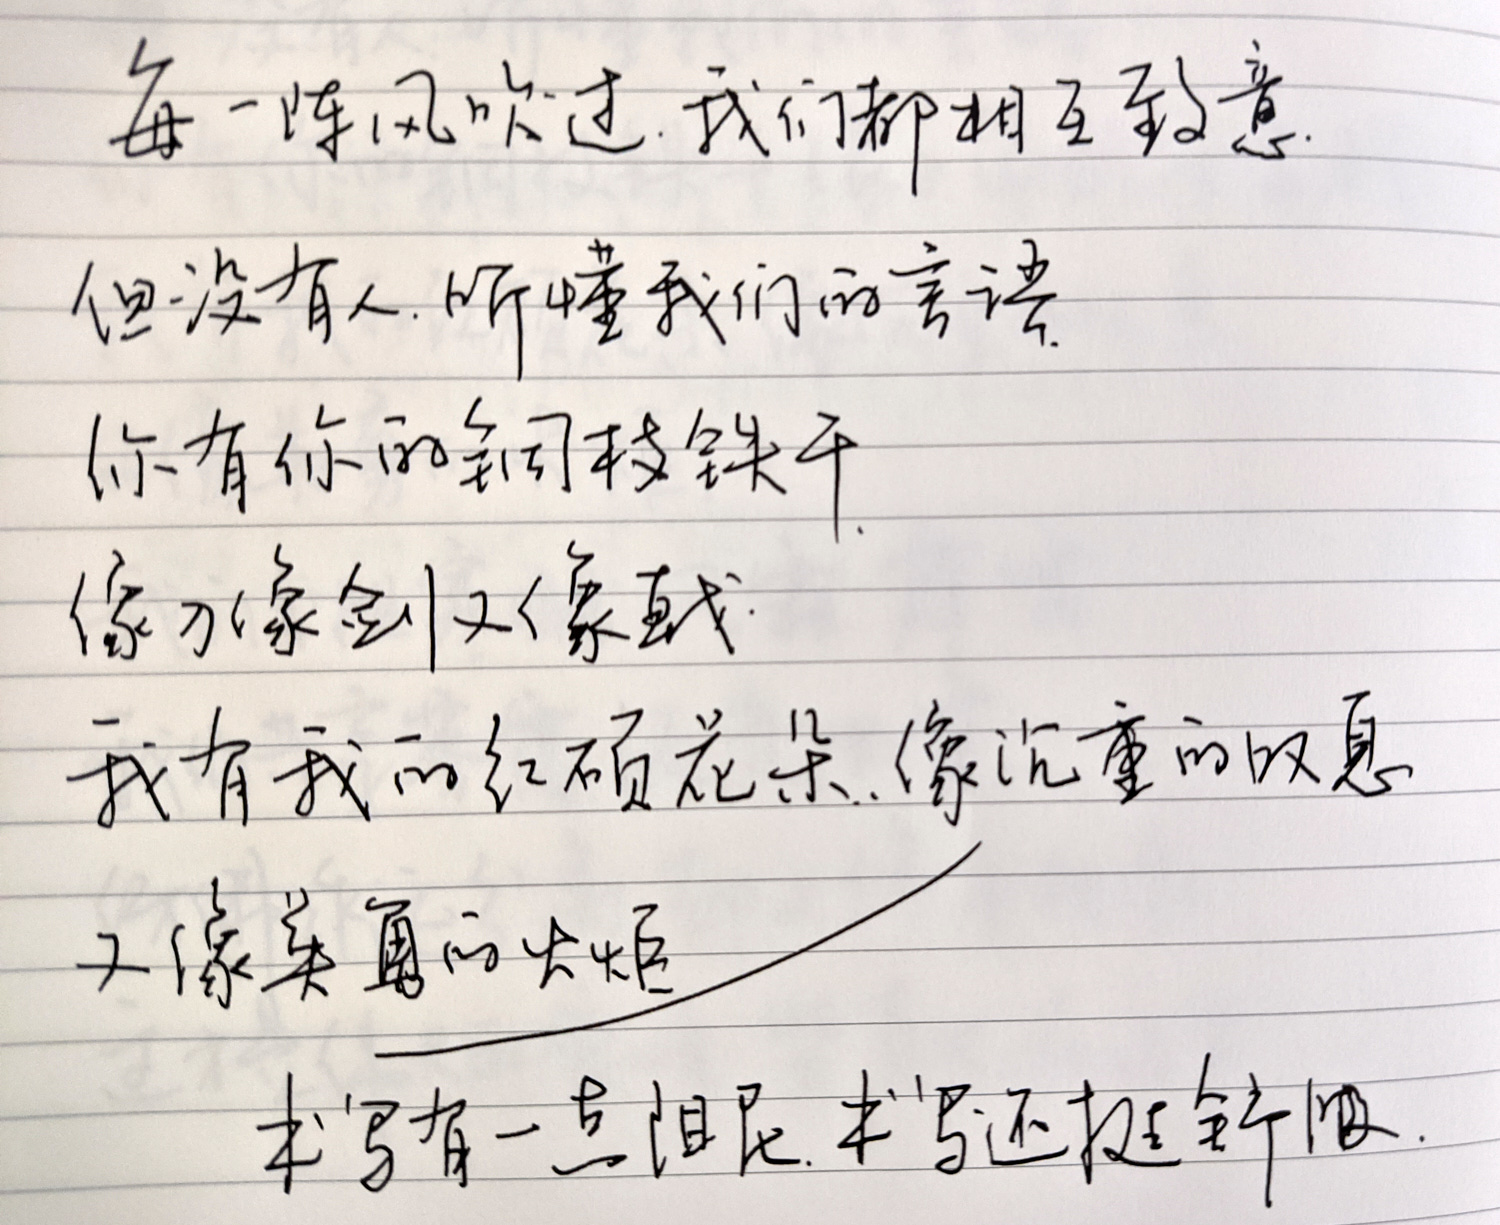 每一阵风吹过.我们都相互致意.
但没有人.听懂我们的言语.
你有你的铜枝铁干.
像刀像剑又像戟.
我有我的红硕花朵.像沉重的叹息
又像英勇的火炬
书写有一点阻尼.书写还挺舒服.